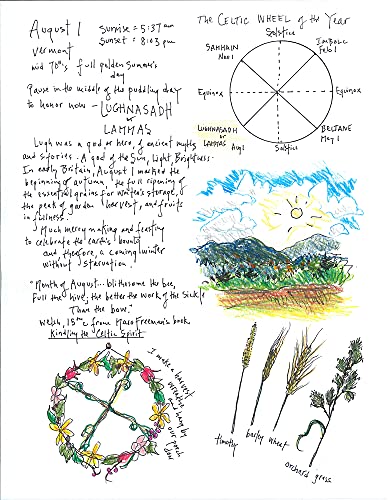 August 1 sunrise = 5:37 am
Vermont sunset = 8:03 pm
mid 70's full golden summer's
day
Pause in the middle of the pudding day
to honor now -
LUGHNASADH
or
LAMMAS
Lugh was a god or hero, of ancient myths
and stories. A god of the Sun, Light, Brightness.
In early Britain, August 1 marked the
beginning of autumn, the full ripening of
the essential grains for winter's storage,
the peak of garden harvest, and fruits
in fullness.
Much merry making and feasting
to celebrate the earth's bounty
and therefore, a coming winter
without starvation.
"Month of August.. blithesome the bee,
Full the hive; the better the work of the sickle
Than the bow."
Welsh, 15th c from Mara Freeman's book
Kindling the Celtic Spirit
I make a harvest
and hang by
our porch
door
The CELTIC WHEEL of the Year
Solstice
SAMHAIN
Nov 1
IMBOLC
Feb 1
Equinox
Equinox
LUGHNASADH
or
LAMMAS Aug 1
Solstice
BELTANE
May 1
timothy
barley
wheat
orchard grass